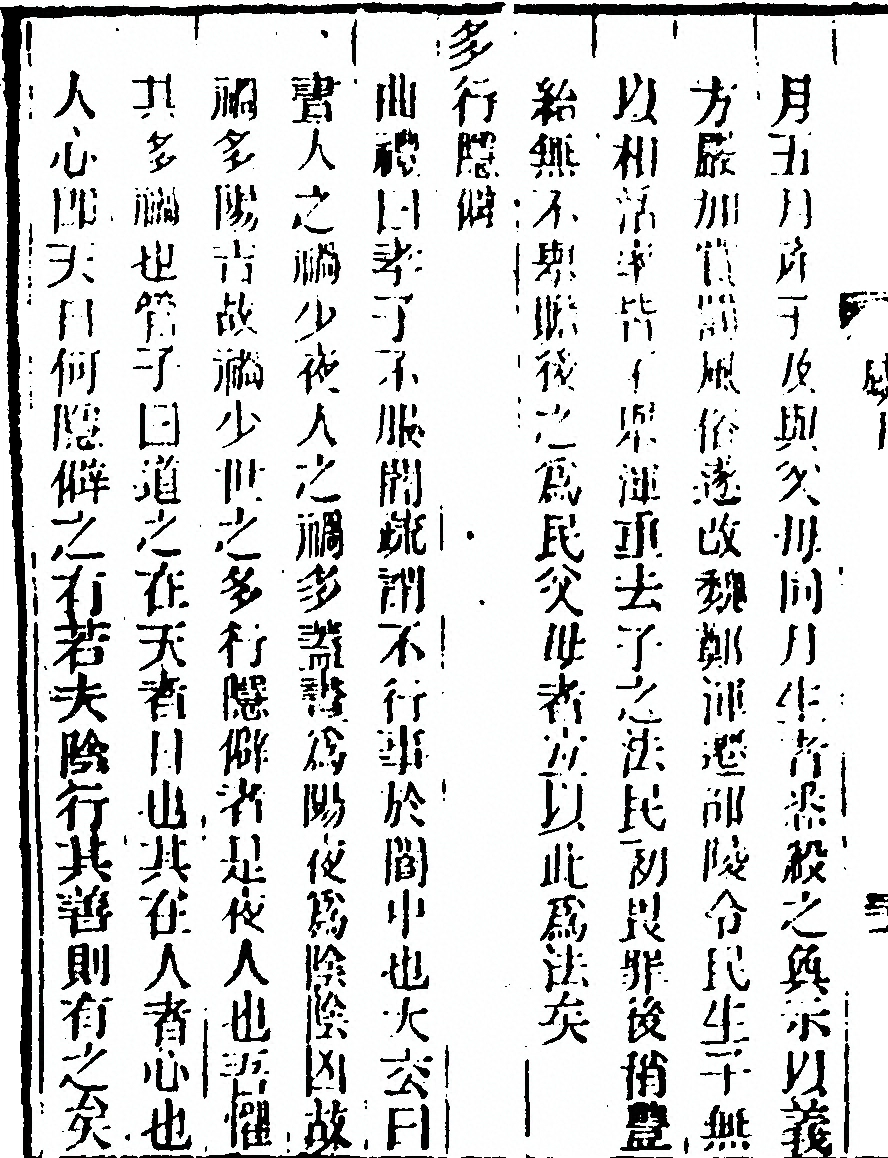 月五月產子及與父母同月生者悉殺之奐示以義
方嚴加賞罰風俗遂改魏鄭渾遷邵陵令民生子無
以相活率皆不舉渾重去子之法民初畏罪後稍豐
給無不舉贍後之為民父母者宜以此為法矣
多行隱僻
曲禮曰孝子不服闇疏謂不行事於闇中也太玄曰
晝人之禍少夜人之禍多蓋晝為陽夜為陰陰凶故
禍多陽吉故禍少世之多行隱僻者是夜人也吾懼
其多禍也管子曰道之在天者日也其在人者心也
人心即天日何隱僻之有若夫陰行其善則有之矣